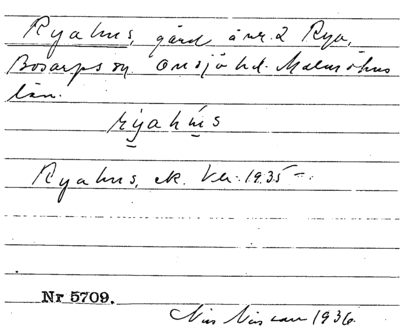 Ryahus, gård å nr. 2 Rya,
Bosarps sn. Onsjö hd. Malmöhus
län.
ryahus
Ryahus, ek. kh. 1935 –
Nr 5709.
Nils Nilsson 1936.